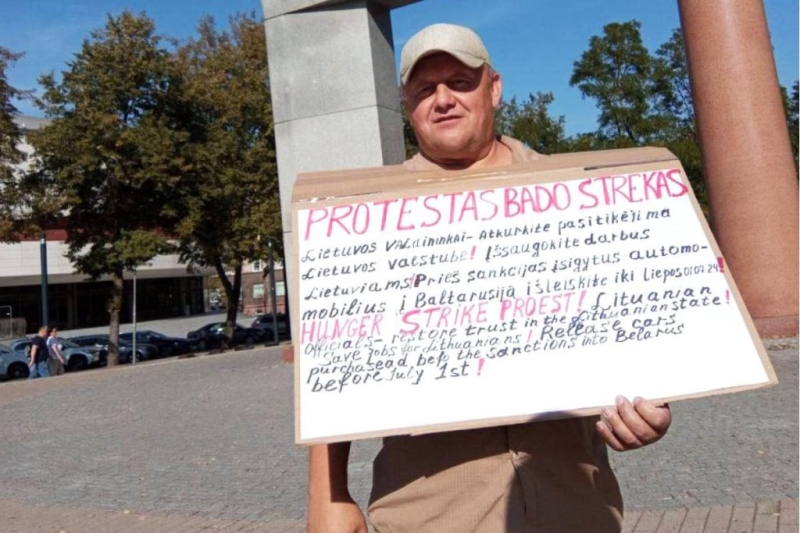 PROTESTAS BADO STREKAS
Lietuvos VALdininkai- Atkurkite pasitikėjima
Lietuvos valstube! Išsaugokite darbus
Lietuviams! Prieš sankcijas įsigytus automo-
mobilius į Baltarusiją išleiskite iki Liepos 01.07.24!
HUNGER STRIKE PROEST! Lithuanian
Officials- restore trust in the Lithuanian state!
Save jobs for Lithuanians! Release cars
purchasead befo the sanctions into Belarus
before July 1st!